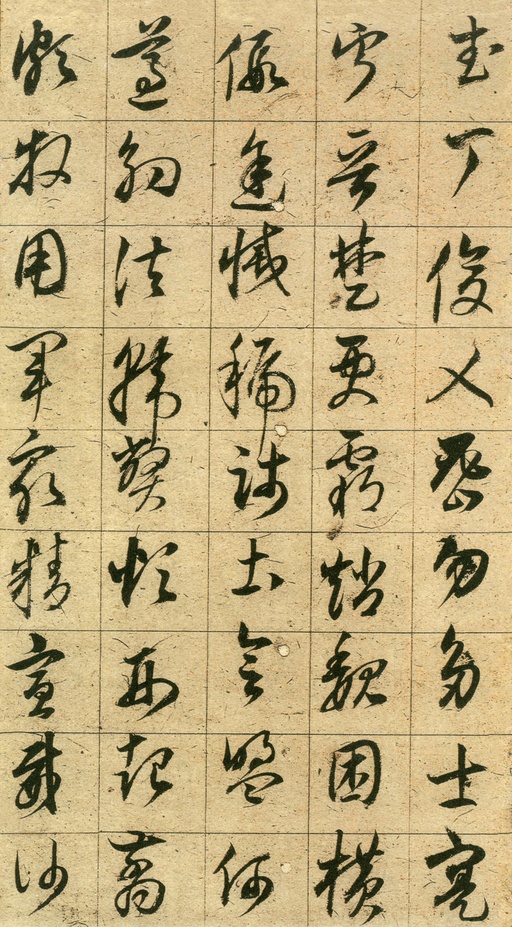 武丁俊乂密勿多士寔
寧晉楚更霸趙魏困橫
假途滅虢踐土會盟何
遵約法韓弊煩刑起翦
頗牧用軍最精宣威沙